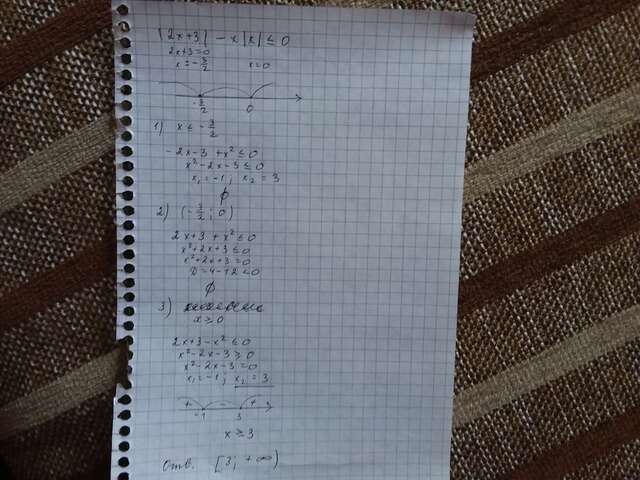 |2x+3| - x|x| ≤ 0
2x+3=0 x=0
x = -3/2
-3/2 0
1) x ≤ -3/2
-2x-3+x² ≤ 0
x²-2x-3 ≤ 0
x₁=-1; x₂=3
∅
2) (-3/2; 0)
2x+3+x² ≤ 0
x²+2x+3 ≤ 0
x²+2x+3=0
D=4-12<0
∅
3)
x ≥ 0
2x+3-x² ≤ 0
x²-2x-3 ≥ 0
x²-2x-3=0
x₁=-1; x₂=3
+ - +
-1 3
x ≥ 3
Отв. [3; +∞)